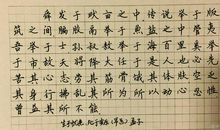 舜发于畎亩之中传说举于版
筑之间胶鬲举于鱼盐之中管夷
吾举于士孙叔敖举于海百里奚举
于市故天将降大任于是人也必先
苦其心志劳其筋骨饿其体肤空乏
其身行拂乱其所为所以动心忍性
曾益其所不能
生于忧患，死于安乐（节选）孟子